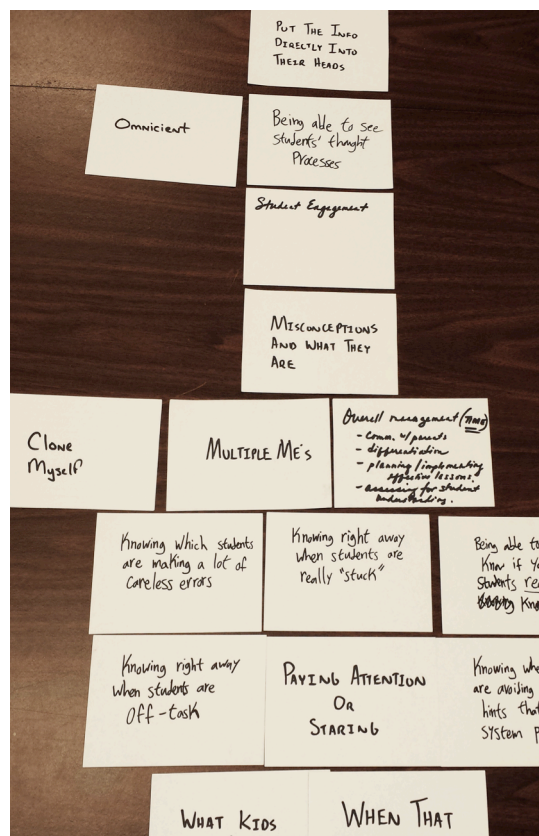 PUT THE INFO
DIRECTLY INTO
THEIR HEADS
Omnicient
Being able to see
students' thought
Processes
Student Engagement
MISCONCEPTIONS
AND WHAT THEY
ARE
CLONE
MYSELF
MULTIPLE ME'S
Overall management (TIME)
- Comm. w/ parents
- differentiation
- planning/implementing
effective lessons.
- assessing for student
understanding.
Knowing which students
are making a lot of
careless errors
Knowing right away
when students are
really "stuck"
Being able to
know if
students
Kn
Knowing right away
when students are
Off-task
PAYING ATTENTION
OR
STARING
Knowing
are avoiding
hints
system
WHAT KIDS
WHEN THAT